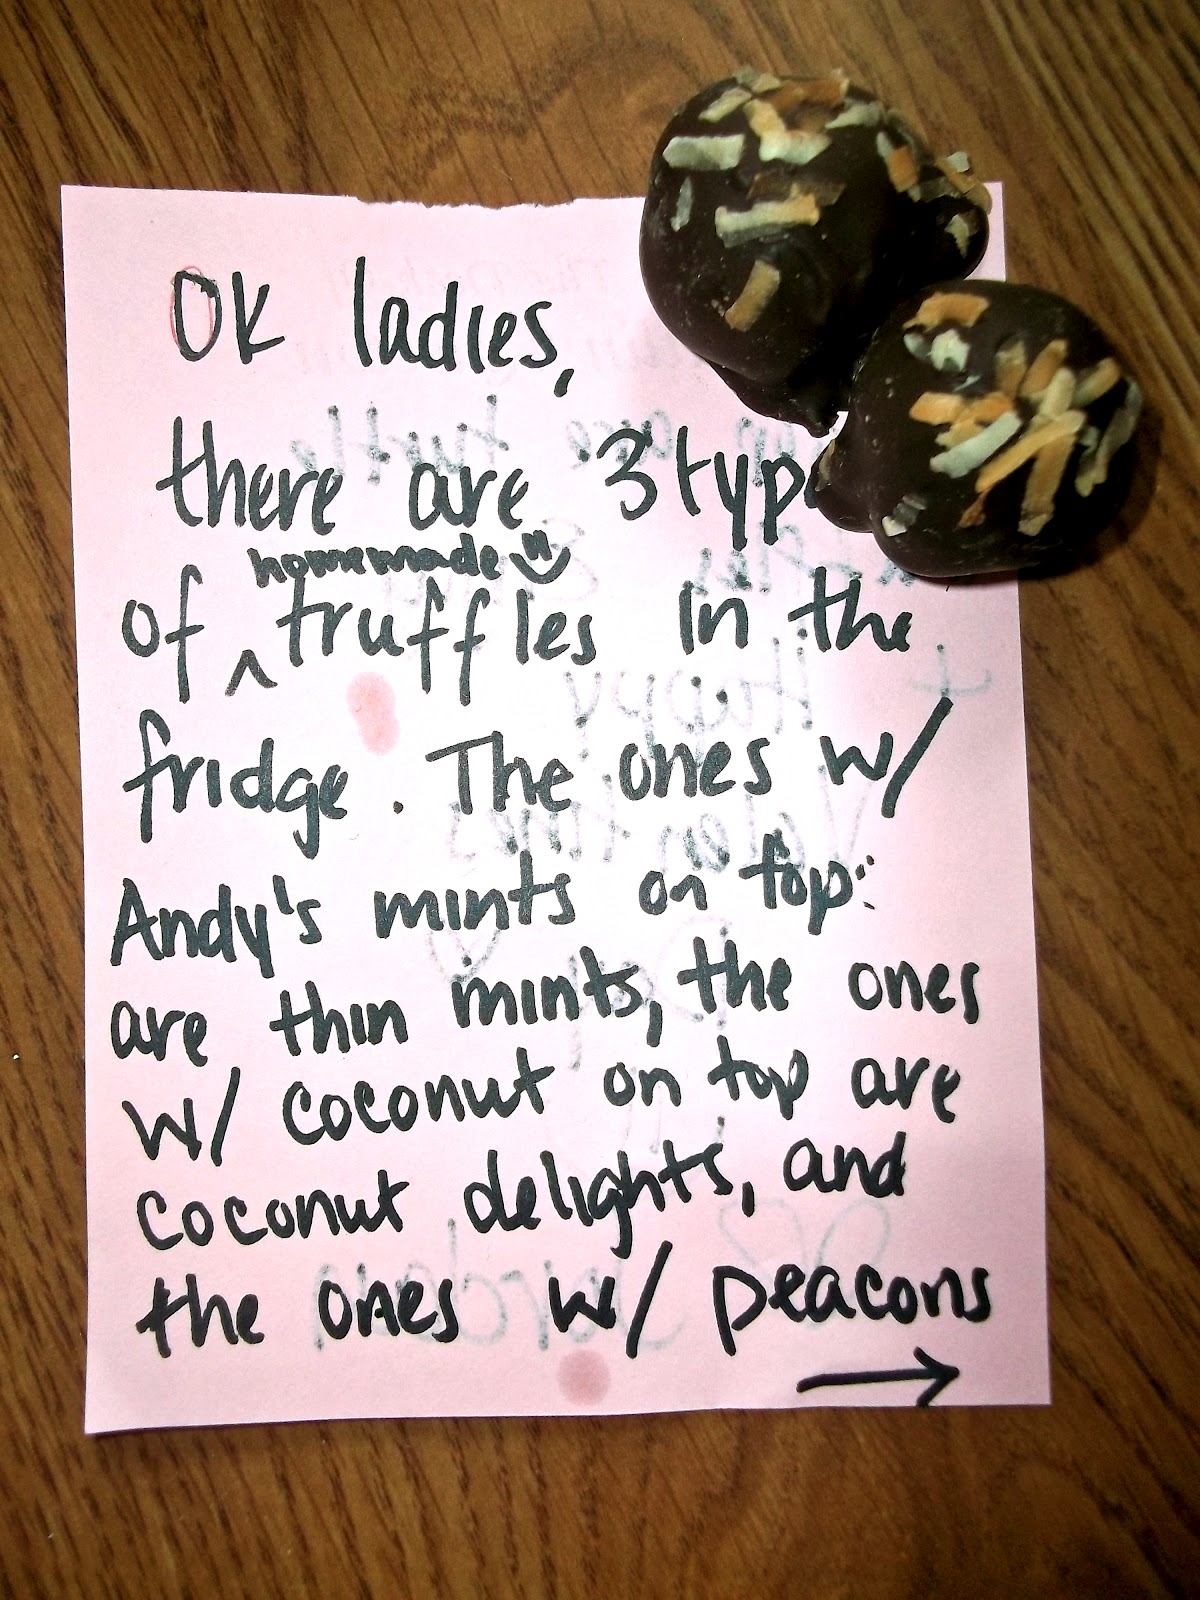 Ok ladies,
there are 3 type
homemade
of ^ truffles in the
fridge. The ones w/
Andy's mints on top
are thin mints, the ones
w/ coconut on top are
coconut delights, and
the ones w/ peacons
→